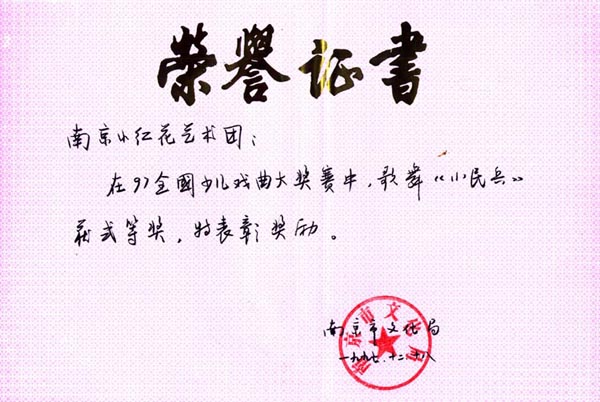 榮譽证書
南京小红花艺术团：
在97全國少儿戏曲大奖赛中，歌舞《小民兵》
获弍等奖，特表彰奖励。
南京市文化局
一九九七.十二.十八
南京市文化局